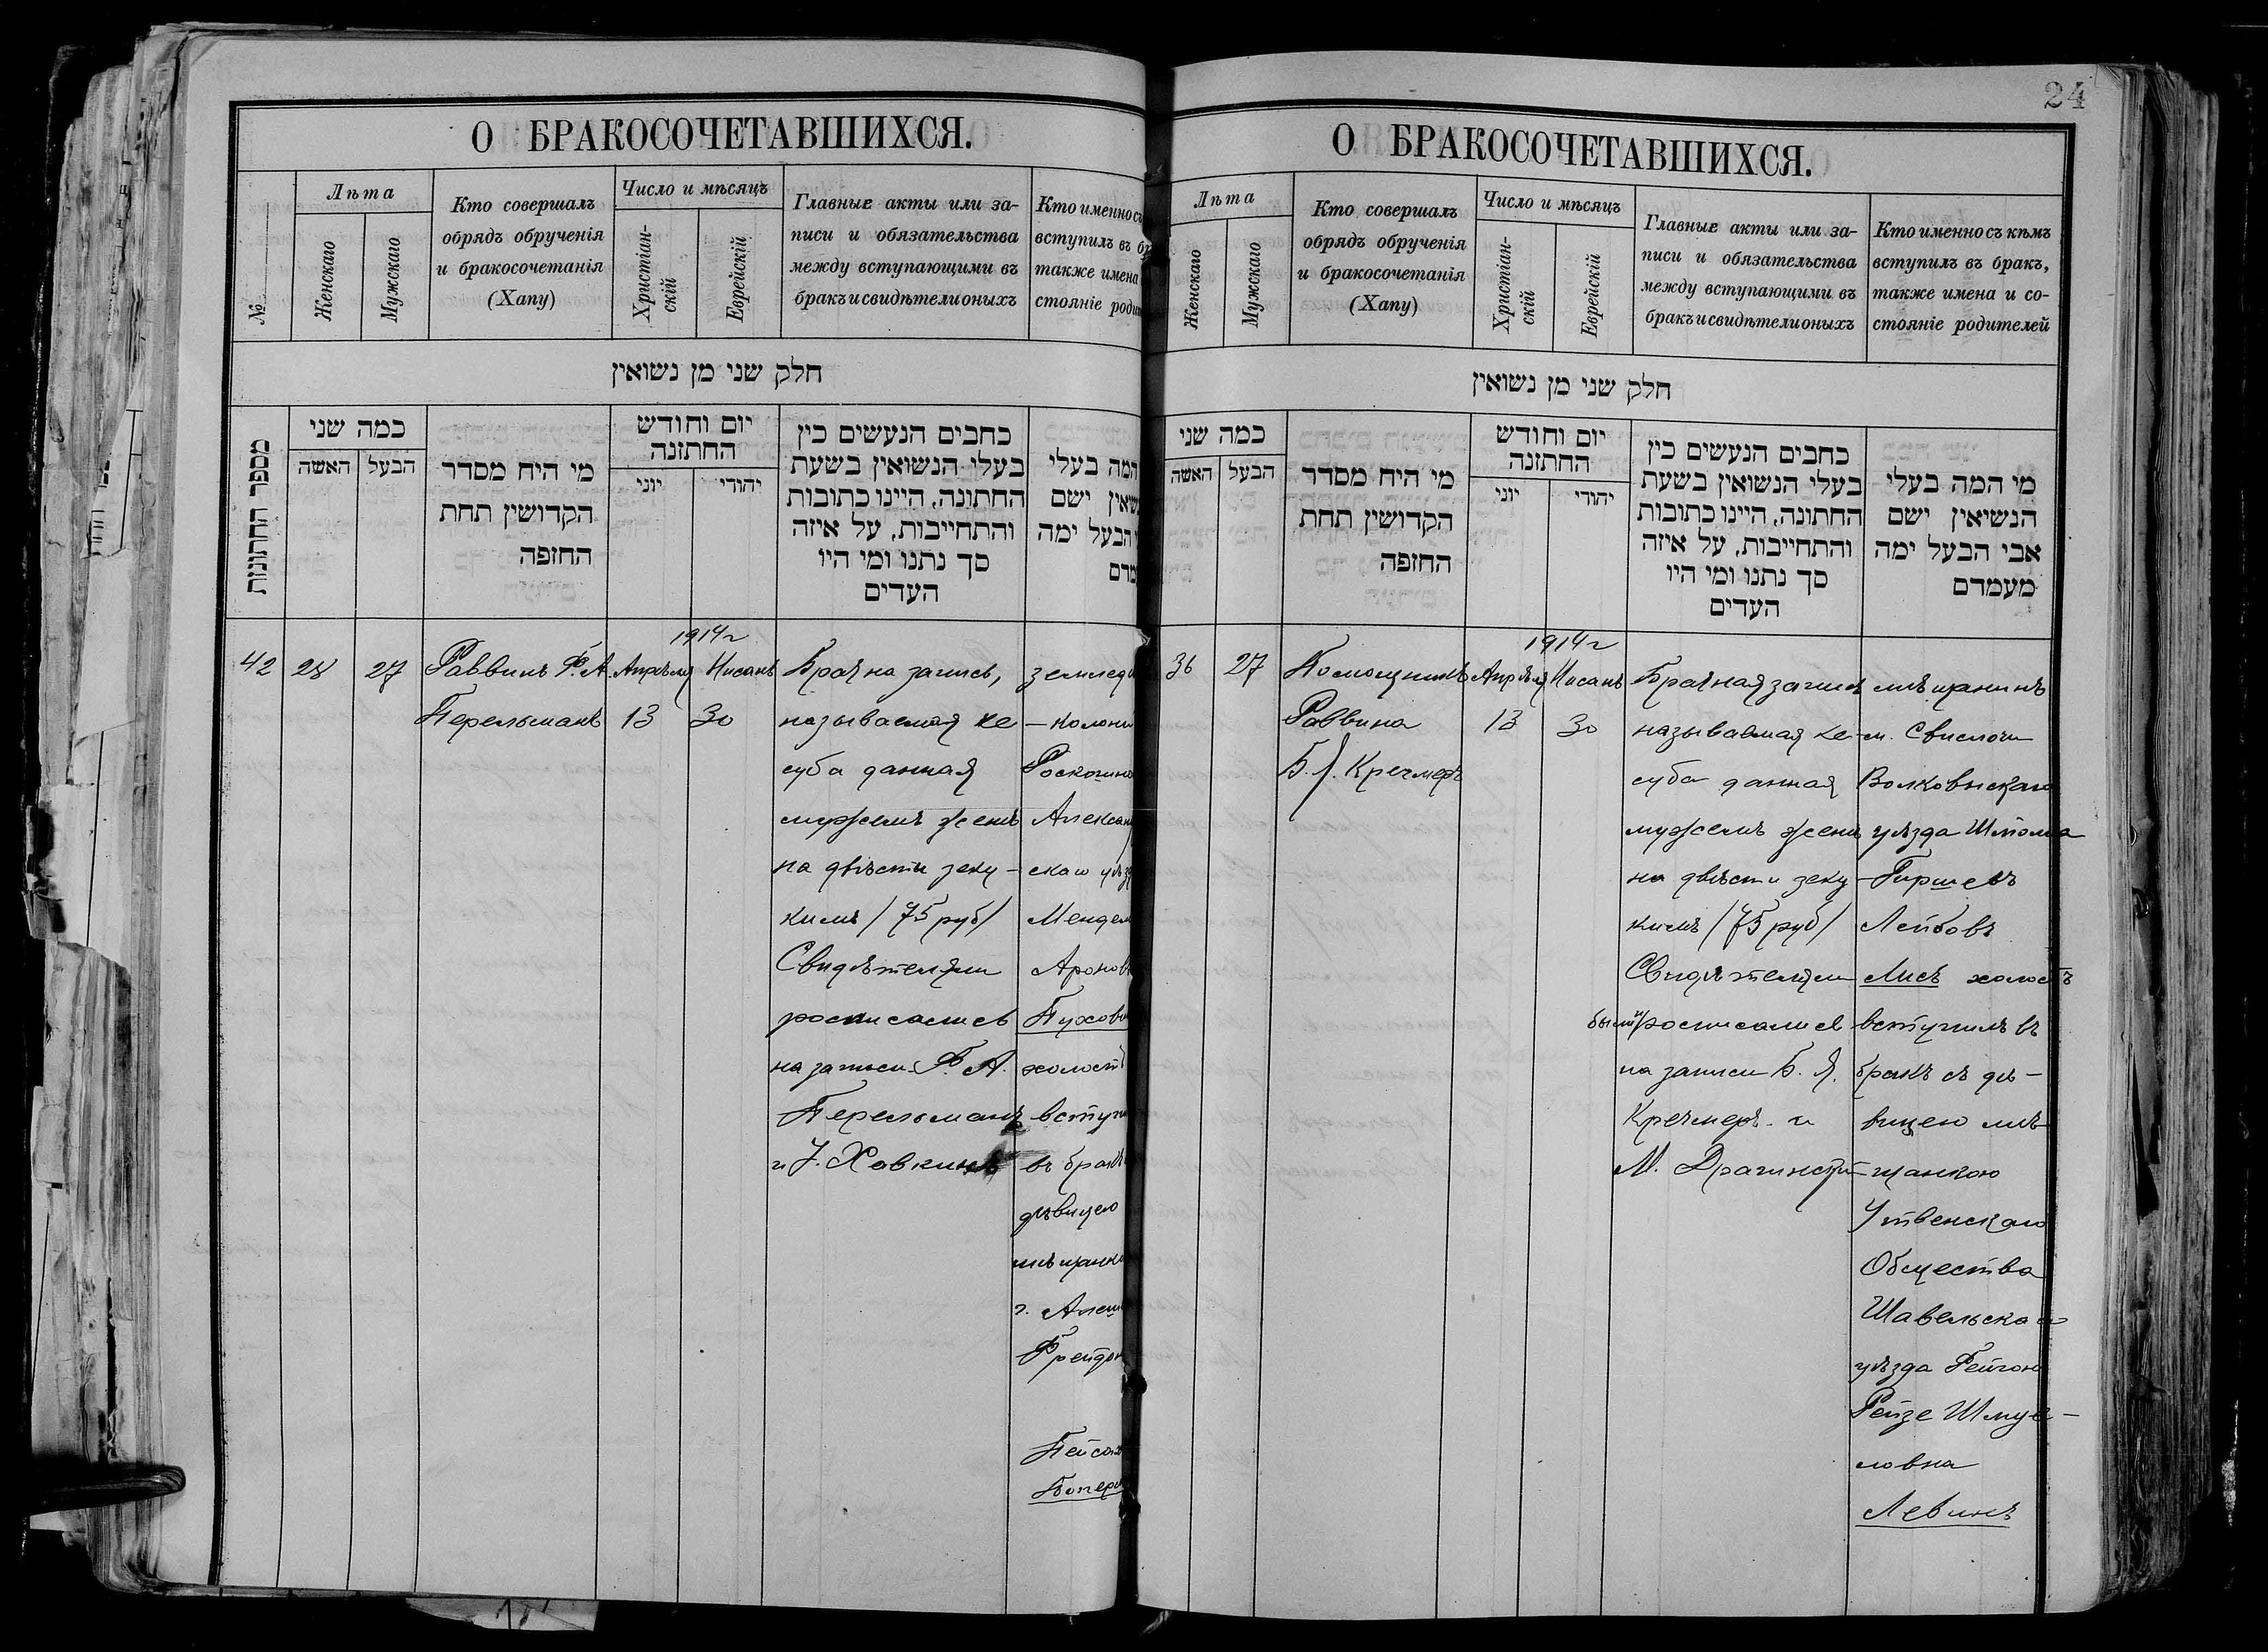 24
О БРАКОСОЧЕТАВШИХСЯ.
№
Лѣта
Женскаго
Мужскаго
Кто совершалъ
обрядъ обрученія
и бракосочетанія
(Хапу)
Число и мѣсяцъ
Христіан-
скій
Еврейскій
Главные акты или за-
писи и обязательства
между вступающими въ
бракъ и свидѣтели оныхъ
Кто именно съ
вступилъ въ б
также имена
стояніе роди
חלק שני מן נשואין
מספר החתונות
כמה שני
האשה
הבעל
מי היח מסדר
הקדושין תחת
החזפה
יום וחודש
החתזנה
יוני
יהודי
כחבים הנעשים כין
בעלי הנשואין בשעת
החתונה, היינו כתובות
והתחייבות, על איזה
סך נתנו ומי היו
העדים
המה בעלי
ישם
הבעל ימה
42
28
27
Раввинъ Ф. А.
Перельманъ
1914 г
Апрѣля
13
Нисанъ
30
Брачна запись,
называемая ке
суба данная
мужемъ женѣ
на двѣсти зеку-
кимъ /75 руб/
Свидѣтелями
росписались
на записи Ф. А.
Перельманъ
и J. Хавкинъ
землед
-колони
Роскошно
Алексан
скаго уѣзд
Мендел
Аронов
Пухов
холост
вступи
въ бракъ
дѣвицею
мѣщанк
г. Алеш
Фрейд
Пейсах
О БРАКОСОЧЕТАВШИХСЯ.
Лѣта
Женскаго
Мужскаго
Кто совершалъ
обрядъ обрученія
и бракосочетанія
(Хапу)
Число и мѣсяцъ
Христіан-
скій
Еврейскій
Главные акты или за-
писи и обязательства
между вступающими въ
бракъ и свидѣтели оныхъ
Кто именно съ кѣмъ
вступилъ въ бракъ,
также имена и со-
стояніе родителей
חלק שני מן נשואין
כמה שני
האשה
הבעל
מי היח מסדר
הקדושין תחת
החזפה
יום וחודש
החתזנה
יוני
יהודי
כחבים הנעשים כין
בעלי הנשואין בשעת
החתונה, היינו כתובות
והתחייבות, על איזה
סך נתנו ומי היו
העדים
מי המה בעלי
הנשיאין ישם
אבי הבעל ימה
מעמדם
36
27
Помощникъ
Раввина
Б. Я. Кречмеръ
1914 г
Апрѣля
13
Нисанъ
30
Брачная запись
называемая ке-
суба данная
мужемъ женѣ
на двѣсти зеку-
кимъ /75 руб/
Свидѣтелями
росписались
на записи Б. Я.
Кречмеръ и
М. Драгинскій
мѣщанинъ
м. Свислочи
Волковыскаго
уѣзда Шлома
Гиршевъ
Лейбовъ
Лисъ холостъ
вступилъ въ
бракъ съ дѣ-
вицею мѣ-
щанкою
Утвенскаго
Общества
Шавельскаго
уѣзда
Рейзе Шмуе-
ловна
Левинъ